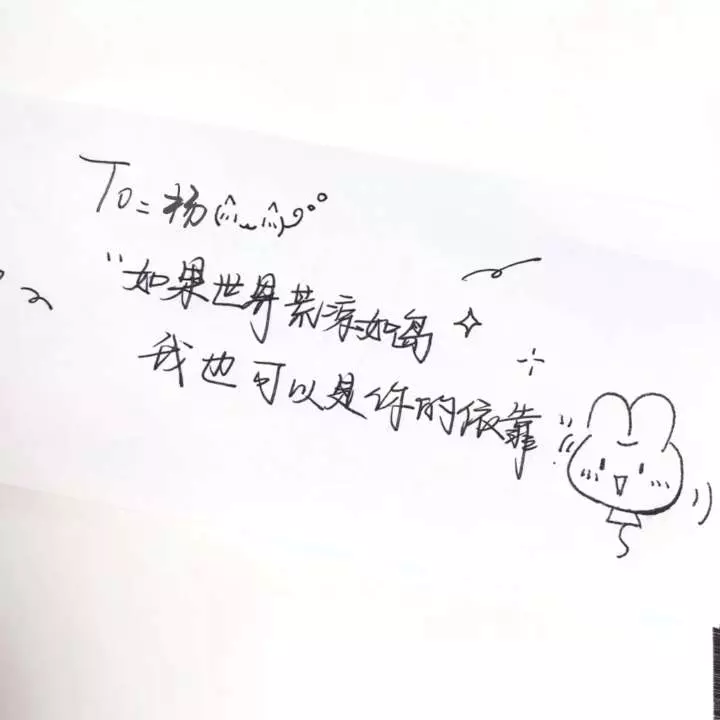 To: 杨
“如果世界荒凉如岛
我也可以是你的依靠”